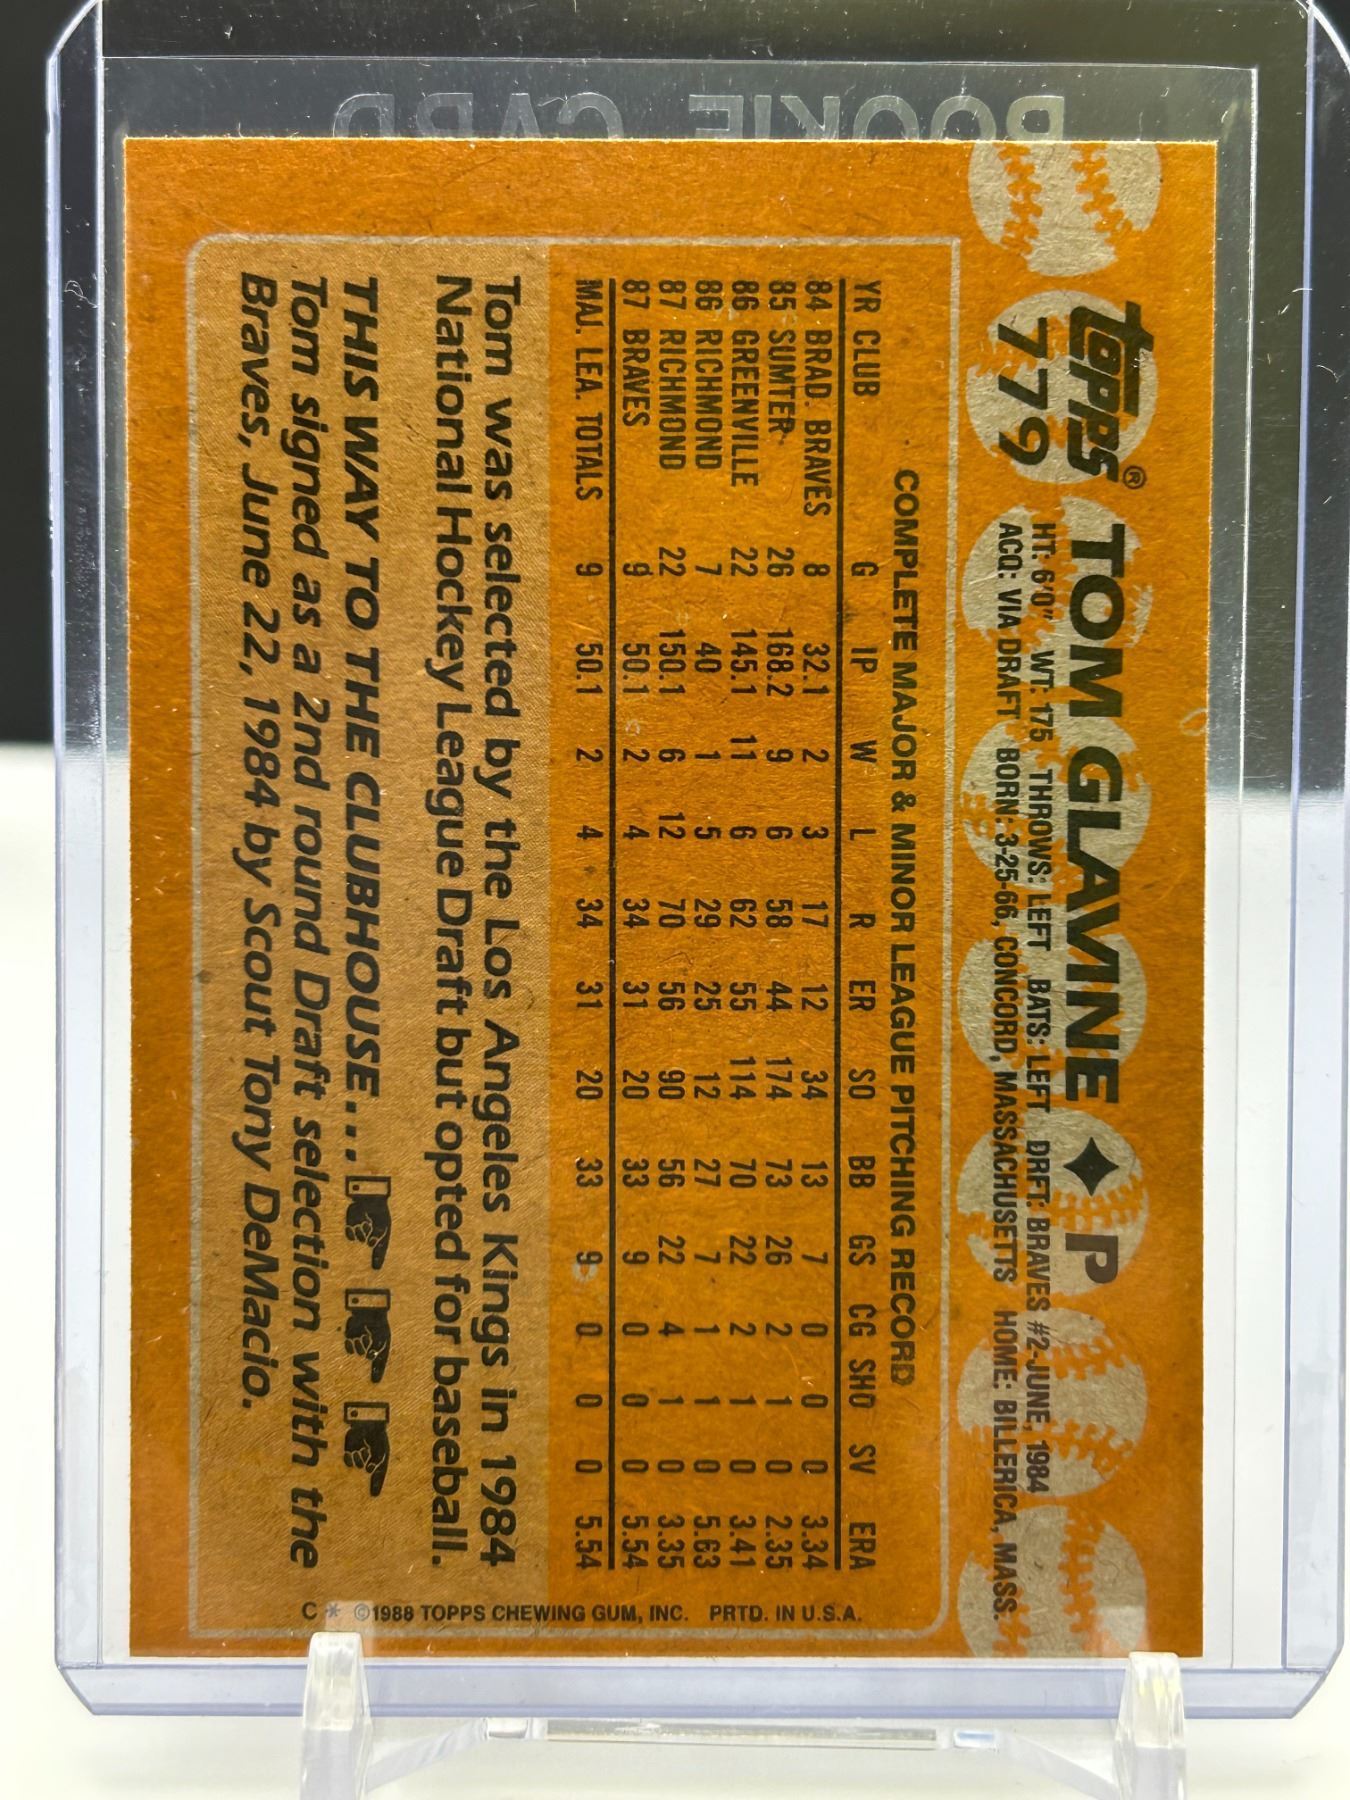 ROOKIE CARD
topps®
779
TOM GLAVINE P
HT: 6'0" WT: 175 THROWS: LEFT BATS: LEFT DRFT: BRAVES #2-JUNE, 1984
ACQ: VIA DRAFT BORN: 3-25-66, CONCORD, MASSACHUSETTS HOME: BILLERICA, MASS.
COMPLETE MAJOR & MINOR LEAGUE PITCHING RECORD
YR CLUB G IP W L R ER SO BB GS CG SHO SV ERA
84 BRAD. BRAVES 8 32.1 2 3 17 12 34 13 7 0 0 0 3.34
85 SUMTER 26 168.2 9 6 58 44 174 73 26 2 1 0 2.35
86 GREENVILLE 22 145.1 11 6 62 55 114 70 22 2 1 0 3.41
86 RICHMOND 7 40 1 5 29 25 12 27 7 1 1 0 5.63
87 RICHMOND 22 150.1 6 12 70 56 90 56 22 4 1 0 3.35
87 BRAVES 9 50.1 2 4 34 31 20 33 9 0 0 0 5.54
MAJ. LEA. TOTALS 9 50.1 2 4 34 31 20 33 9 0 0 0 5.54
Tom was selected by the Los Angeles Kings in 1984
National Hockey League Draft but opted for baseball.
THIS WAY TO THE CLUBHOUSE...
Tom signed as a 2nd round Draft selection with the
Braves, June 22, 1984 by Scout Tony DeMacio.
C* ©1988 TOPPS CHEWING GUM, INC. PRTD. IN U.S.A.